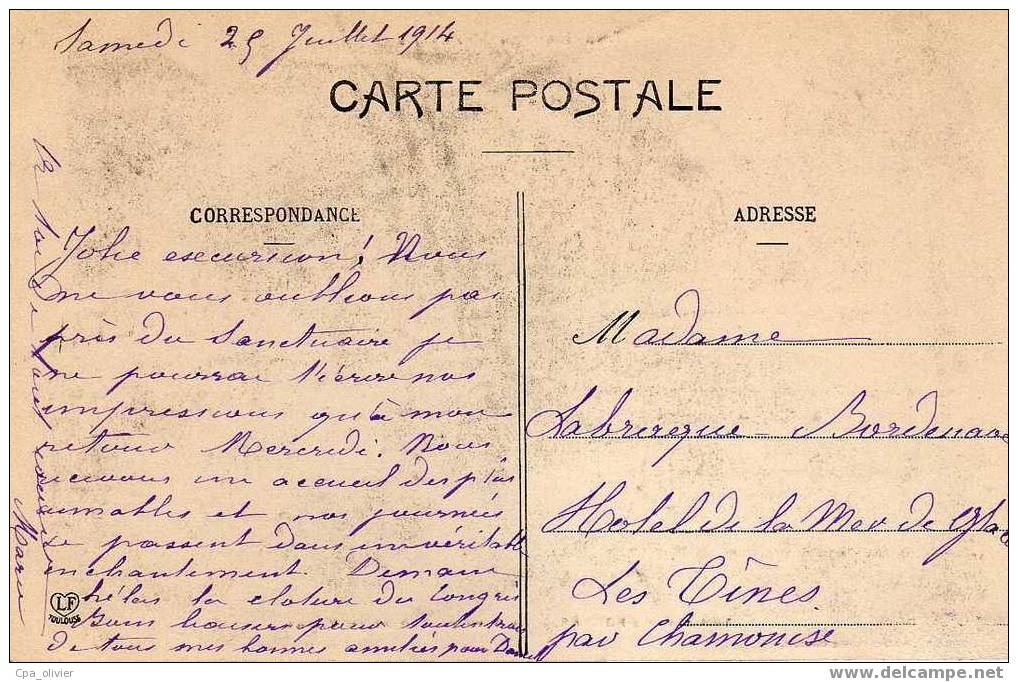 Samedi 25 Juillet 1914
CARTE POSTALE
CORRESPONDANCE
Jolie excursion! Nous
ne vous oublions pas
près du Sanctuaire je
ne pourrai t'écrire nos
impressions qu'à mon
retour Mercredi. Nous
recevons un accueil des plus
aimables et nos journées
se passent dans un véritable
enchantement. Demain
hélas la cloture du Congrès
Bons baisers pour
de tous mes bonnes amitiés pour
Marie
ADRESSE
Madame
Bordenave
Hotel de la Mer de Glace
Les Tînes
par Chamonix
LF
TOULOUSE
Cpa_olivier
delcampe.net